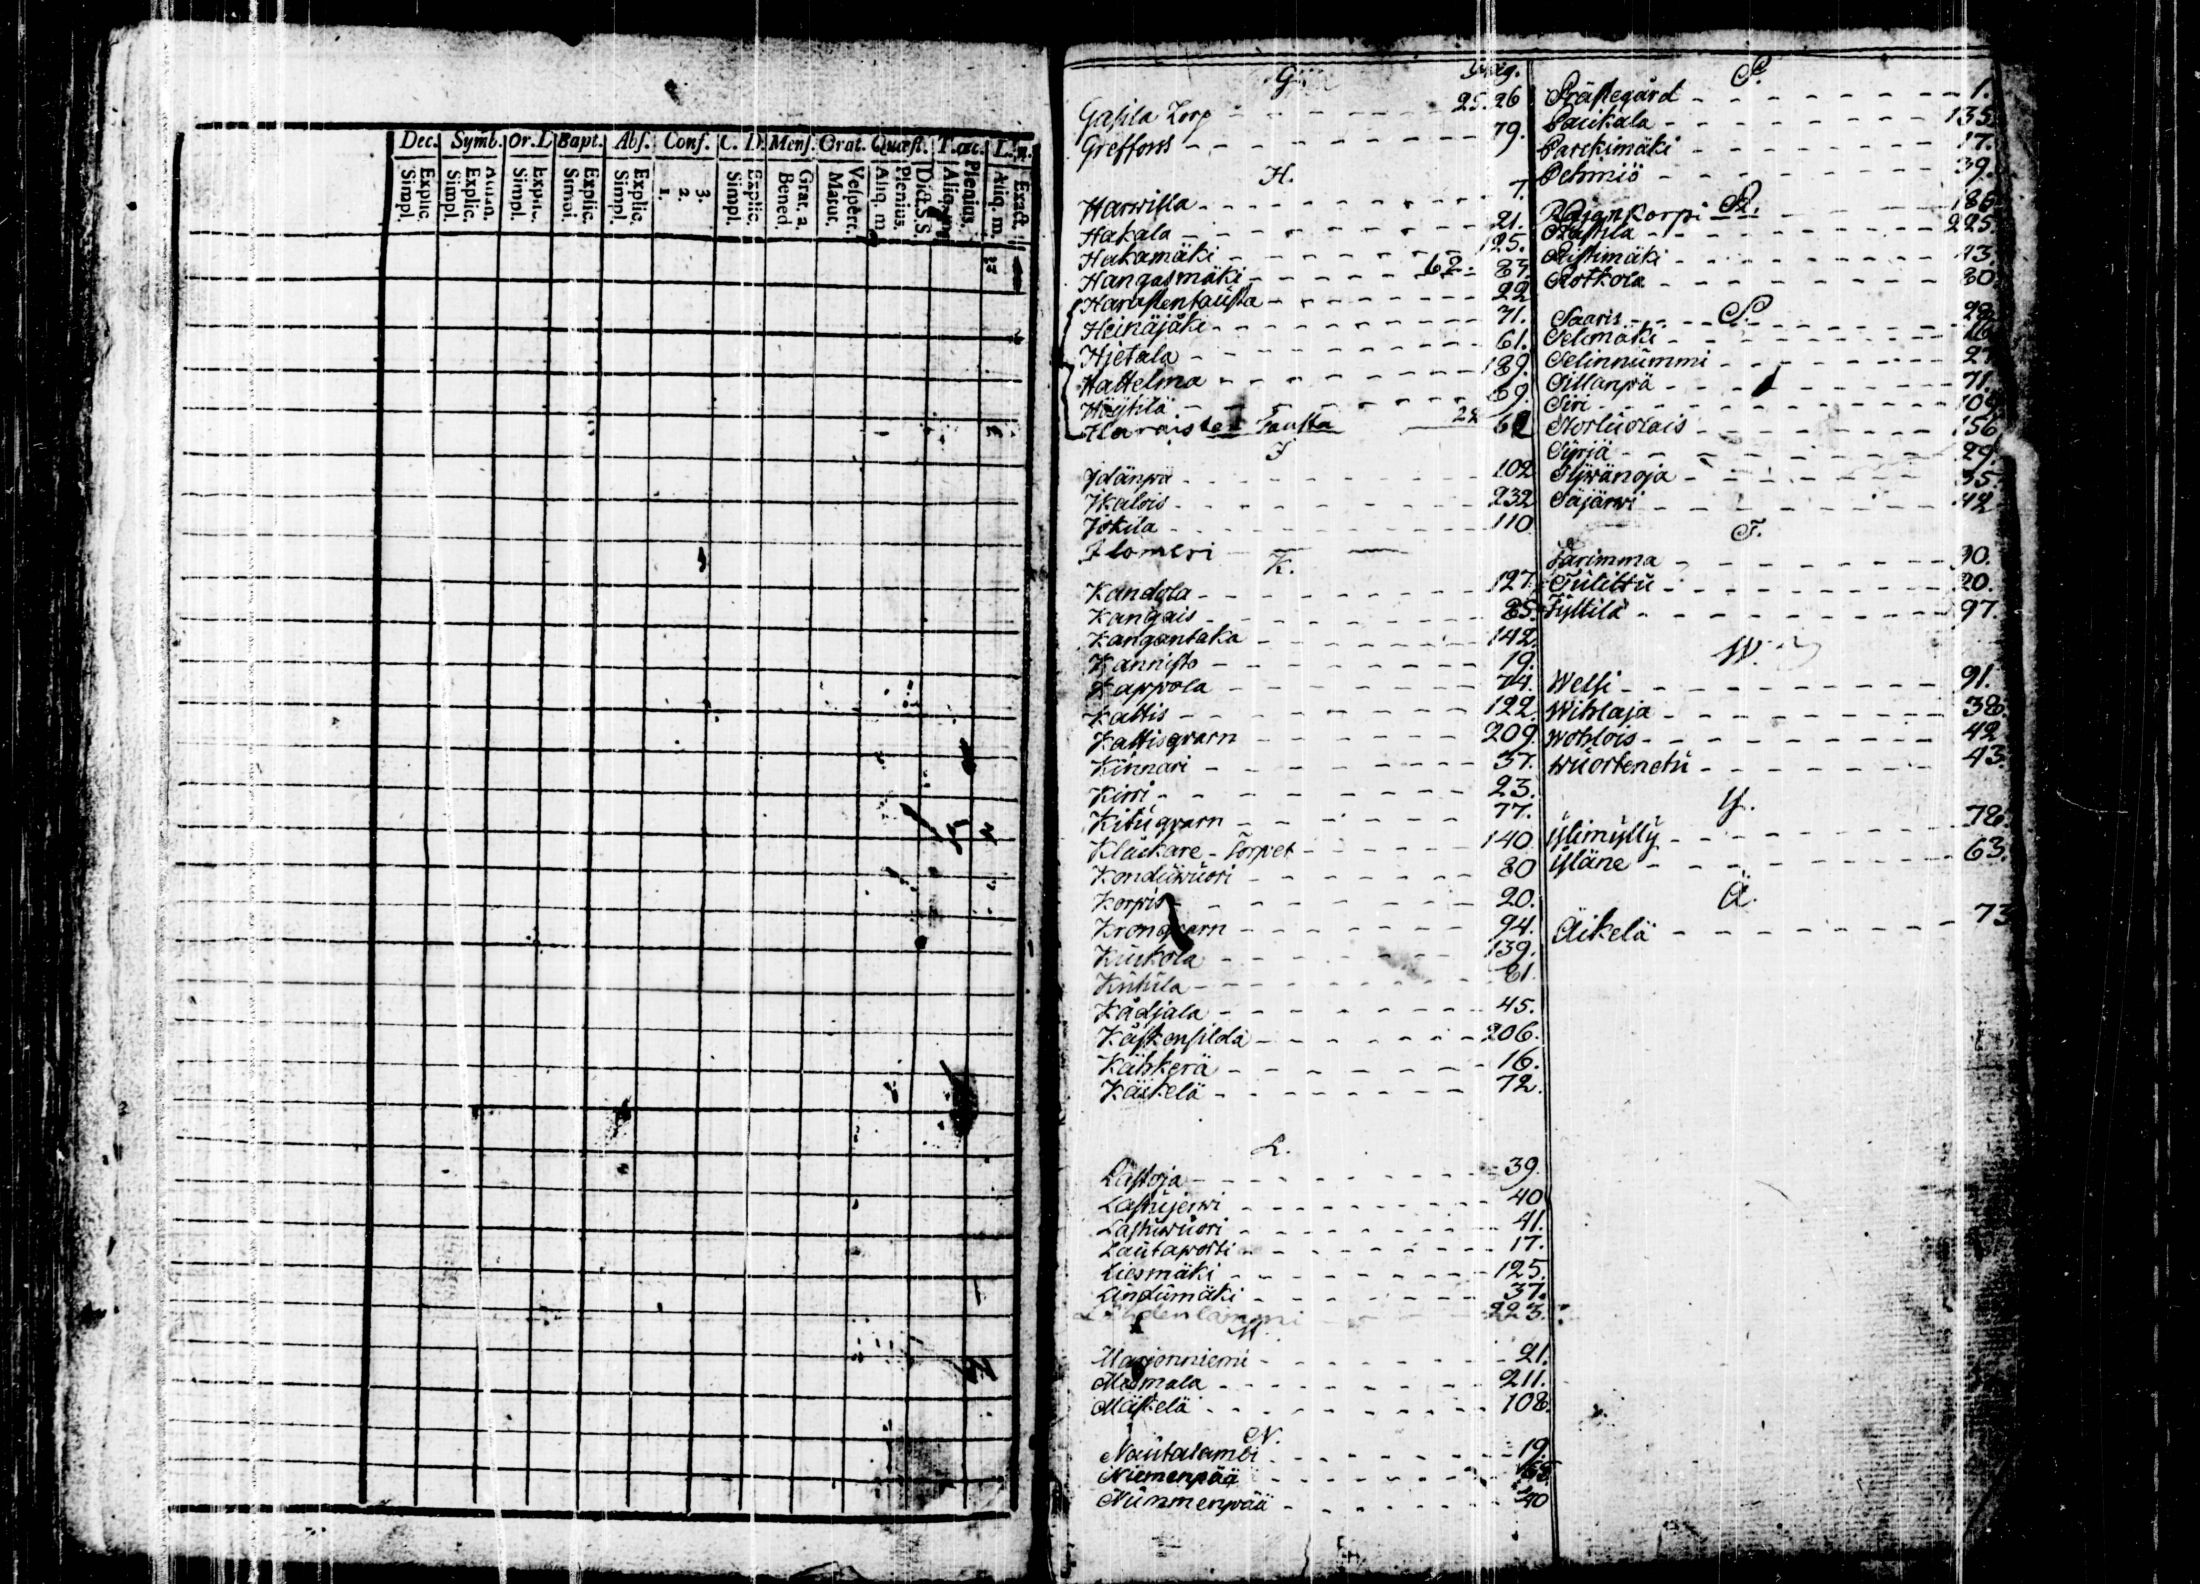 Dec. Symb. Or. D. Bapt. Abs. Conf. C. D. Mens. Orat. Quæst. T. œc.
Explic. Simpl.
Explic. Simpl.
Explic. Simpl.
Explic. Simpl.
Explic. Simpl.
3. 2. 1.
Explic. Simpl.
Grat. a. Bened.
Vesper. Matut.
Plenius. Aliq. m
Dict. S. S.
Plenius. Aliq. m
Exact. Aliq. m.
G. Pag.
Gassla Torp 25. 26
Greffors 79.
H.
Harwilla 7.
Hakala 21.
Hakamäki 125.
Hangasmäki 62. 83.
Harastentausta 22
Heinäjäki 71.
Hjetala 61.
Hattelma 189.
Höÿtilä 69.
Haraisten Tausta 22 62
I
Idänpä 102
Ikalois 232
Iokila 110
Ilomeri
K.
Kandola 127.
Kangais 85.
Kangantaka 142.
Kannisto 19.
Kappola 74.
Kattis 122.
Kattisqvarn 209.
Kinnari 37.
Kirri 23.
Kituqvarn 77.
Klackare-Torpet 140
Konduwuori 80
Korpis 20.
Kronqvarn 94.
Kuckola 139.
Kuhila 81
Kådjala 45.
Käskensilda 206.
Kähkerä 16.
Käikelä 72.
L.
Lastoja 39.
Lastujerwi 40
Lastuwuori 41.
Lautaporti 17.
Liesmäki 125.
Lindumäki 37.
223.
M.
Marjonniemi 21.
Mesmala 211.
Mäskelä 108.
N.
Nautalambi 19.
Niemenpää
Nummenpää 40
P.
Prästegård 1.
Paukala 135
Parckimäki 17.
Pehmiö 39.
R.
Rajankorpi 186
Rastila 225.
Ristimäki 43.
Rotkola 80
S.
Saaris 28
Selimäki 16
Selinnummi 27
Sillanpä 71.
Siri 109
Storluolais 156
Syrjä 29.
Sÿwänoja 35.
Säjärwi 42
T.
Tarimma 30.
Tulittu 20.
Tyttilä 97.
W.
Welsi 91.
Wihlaja 38.
Wohlois 42
Wuortenetu 43.
Y.
Ylimylly 78.
Yläne 63.
Ä.
Äikelä 73